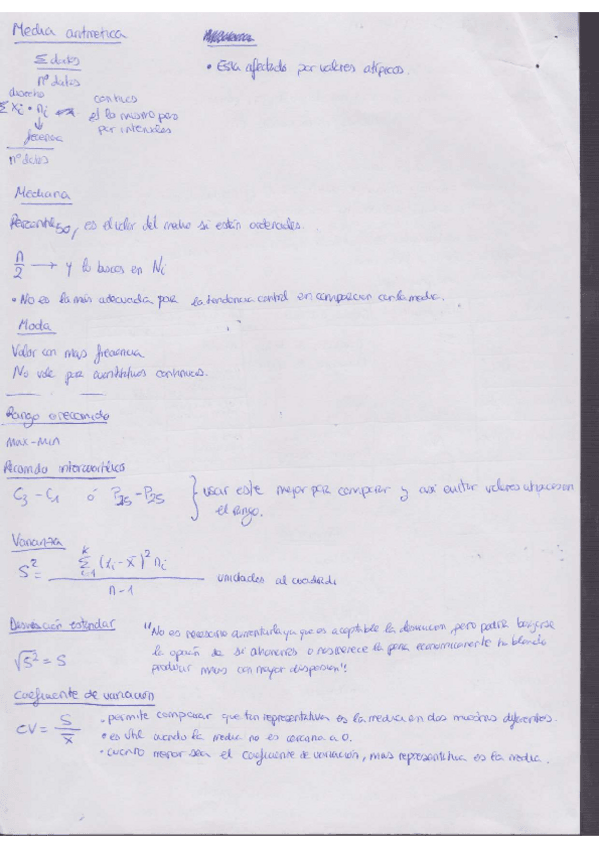 Media aritmetica
• Esta afectado por valores atípicos.
Σ datos
nº datos
discreto
continuos
Σ xi • ni
el lo mismo pero
por intervalos
frecuencia
nº datos
Mediana
Percentil 50, es el valor del medio si están ordenados.
n/2 → y lo buscas en Ni
• No es la más adecuada para la tendencia central en comparacion con la media.
Moda
Valor con mas frecuencia
No vale par cuantitativos continuos.
Rango o recorrido
max-min
Recorrido intercuartílico
C3 - C1 ó P75 - P25 } usar este mejor par comparar y así evitar valores atipicos en
el rango.
Varianza
S² = Σ (xi - x̄)² ni / n-1 unidades al cuadrado
k
i=1
Desviación estándar
"No es necesario aumentarla ya que es aceptible la desviacion, pero podría barajarse
la opción de si
√S² = S
producir mas con mayor dispersion".
Coeficiente de variación
CV = S / x̄
• permite comparar que tan representativa es la media en dos muestras diferentes.
• es util cuando la media no es cercana a 0.
• cuanto menor sea el coeficiente de variación, mas representativa es la media.